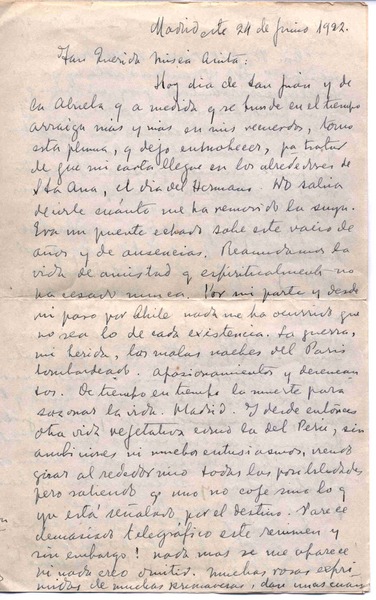 Madrid, 24 de Junio 1922.
Tan Querida Misia Anita:
Hoy dia de San Juan y de
la Abuela q a medida q se hunde en el tiempo
arraiga más y mas en mis recuerdos, tomo
esta pluma, q dejo enmohecer, pa tratar
de que mi carta llegue en los alrededores de
Sta Ana, el dia del Hermano. No sabria
decirle cuánto me ha removido la suya.
Era un puente echado sobre este vacio de
años y de ausencias. Reanudamos la
vida de amistad q espiritualmente no
ha cesado nunca. Por mi parte y desde
mi paso por Chile nada me ha ocurrido que
no sea lo de cada existencia. La guerra,
mi herida, las malas noches del Paris
bombardeado. Apasionamientos y desencan
tos. De tiempo en tiempo la muerte para
sazonar la vida. Madrid. Y desde entonces
otra vida vegetativa como la del Perú, sin
ambiciones ni muchos entusiasmos, viendo
girar al rededor mio todas las posibilidades
pero sabiendo q uno no coje sino lo q
ya está señalado por el destino. Parece
demasiado telegráfico este resumen y
sin embargo! nada mas se me aparece
ni nada creo omitir. Muchas rosas
de muchas primaveras,